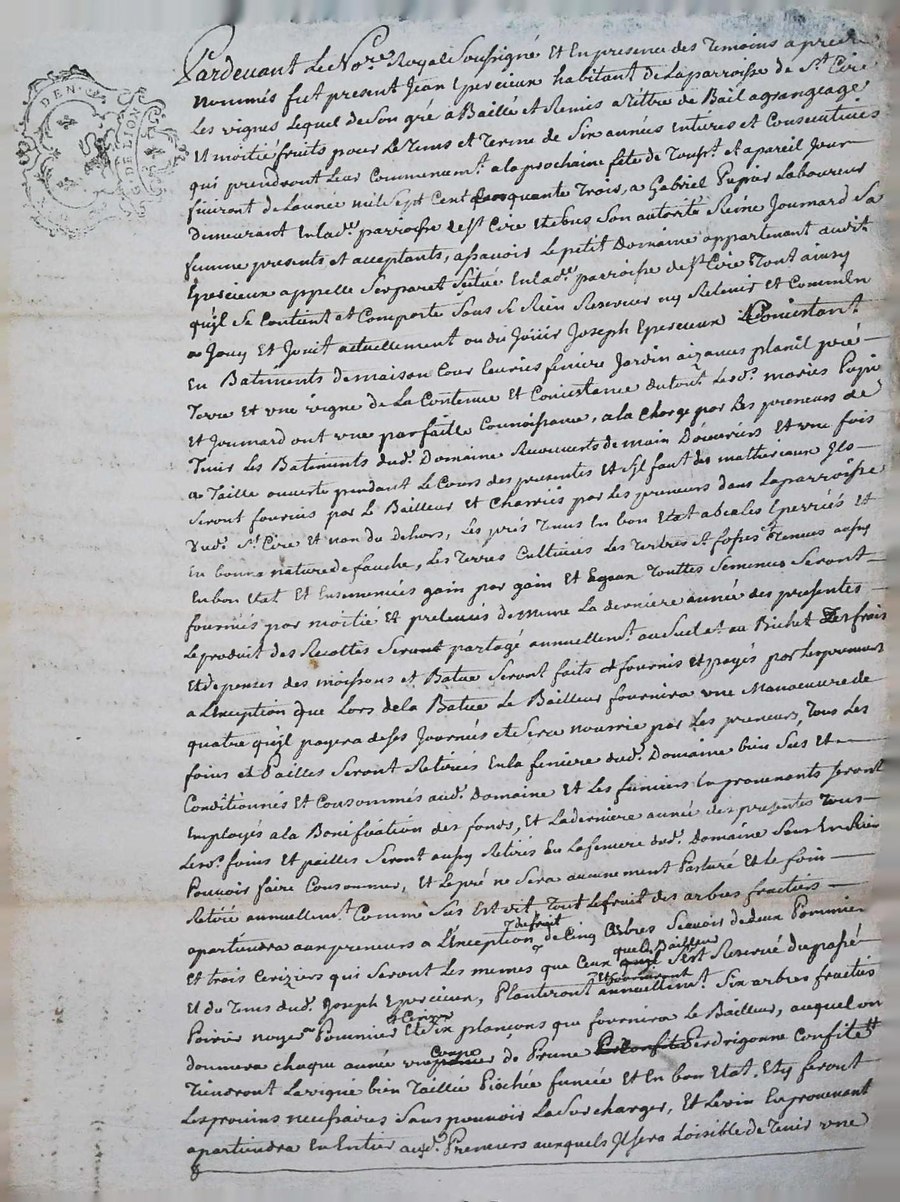 GEN.
DE LION
Pardevant Le No.re Royal Soussigné Et En presence des Temoins apres
nommés fut present Jean Epercieux habitant de La parroisse de St. Cire
Les vignes Lequel de Son gré a Baillé Et Remis a Tittre de Bail a grangeage
Et moitié fruits pour Le Tems et Terme de Six années Entieres et Consecutives
qui prendront Leur Commencemt. a la prochaine fete de Tousst. Et a pareil Jour
finiront de L'année mil Sept Cent Cinquante Trois, a Gabriel Pupier Laboureur
demeurant En lade. parroisse de St. Cire Et de Son autorité Reine Joumard Sa
femme presents et acceptants, assavoir Le petit Domaine appartenant audit
Epercieux appellé Situé En lade. parroisse de St. Cire Tout ainsy
qu'jl Se Contient et Comporte Sans Se Rien Reserver ny Retenir Et Comm'En
a Jouy Et Jouit actuellement ou du Joüir Joseph Epercieux Consistant
En Batiments de maison Cour Ecuries feniere Jardin aizances planil pré
Terre Et une vigne de La Contenue Et Consistance du tout Lesds. mariés Pupier
Et Joumard ont une parfaitte Connoissance, a la Charge par Les preneurs de
Tenir Les Batiments dud. Domaine Recouverts de main D'ouvriers Et une fois
a Taille ouverte pendant Le Cours des presentes Et S'jl faut des matheriaux Jls
Seront fournis par Le Bailleur Et Charriés par Les preneurs dans La parroisse
dud. St. Cire Et non du dehors, Les prés Tenus En bon Etat Egalés Eperriés Et
En bonne nature de fauche, Les Terres Cultivées Les Tertres Et fossés Tenues aussy
En bon Etat Et Ensemencées gain par gain Et Egaux Touttes Semences Seront
fournies par moitié Et prelevées de meme La derniere année des presentes
Le produit des Recoltes Seront partagé annuellemt. au Sol et au Bichet Les frais
Et depenses des moissons et Batue Seront faits et fournis Et payés par Les preneurs
a L'exception que Lors de la Batue Le Bailleur fournira une Manoeuvre de
quatre qu'jl payera de Ses Journées et Sera nourrie par Les preneurs, Tous Les
foins et Pailles Seront Retirés En la feniere dud. Domaine bien Secs Et
Conditionnés Et Consommés aud. Domaine Et Les fumiers En provenants Seront
Employés a la Bonifixation des fonds, Et La derniere année des presentes Tous
Lesds. foins Et pailles Seront aussy Retirés En La feniere dud. Domaine Sans En Rien
Pouvoir faire Consommer, Et Le pré ne Sera aucunement Pasturé Et Le foin
Retiré annuellemt. Comme Sus Est dit Tout Le fruit des arbres fructiers
apartiendra aux preneurs a L'exception du fruit de Cinq Arbres Scavoir de deux Pommier
Et trois Ceriziers qui Seront Les memes que Ceux que Le Bailleur S'est Reservé du passé
Et du Tems dud. Joseph Epercieux, Planteront Et fourniront annuellement Six arbres fructiés
Poirier noyer Pommier Et Cerizier Et Six plançons que fournira Le Bailleur, auquel on
donnera chaque année une Coupe de Prune Perdrigonne Confite
Tiendront La vigne bien Taillée Piochée fumée Et En bon Etat. Et y feront
Les provins necessaires Sans pouvoir La Surcharger, Et Le vin En provenant
apartiendra En Entier auxd. Preneurs auxquels Jl Sera Loisible de Tenir une